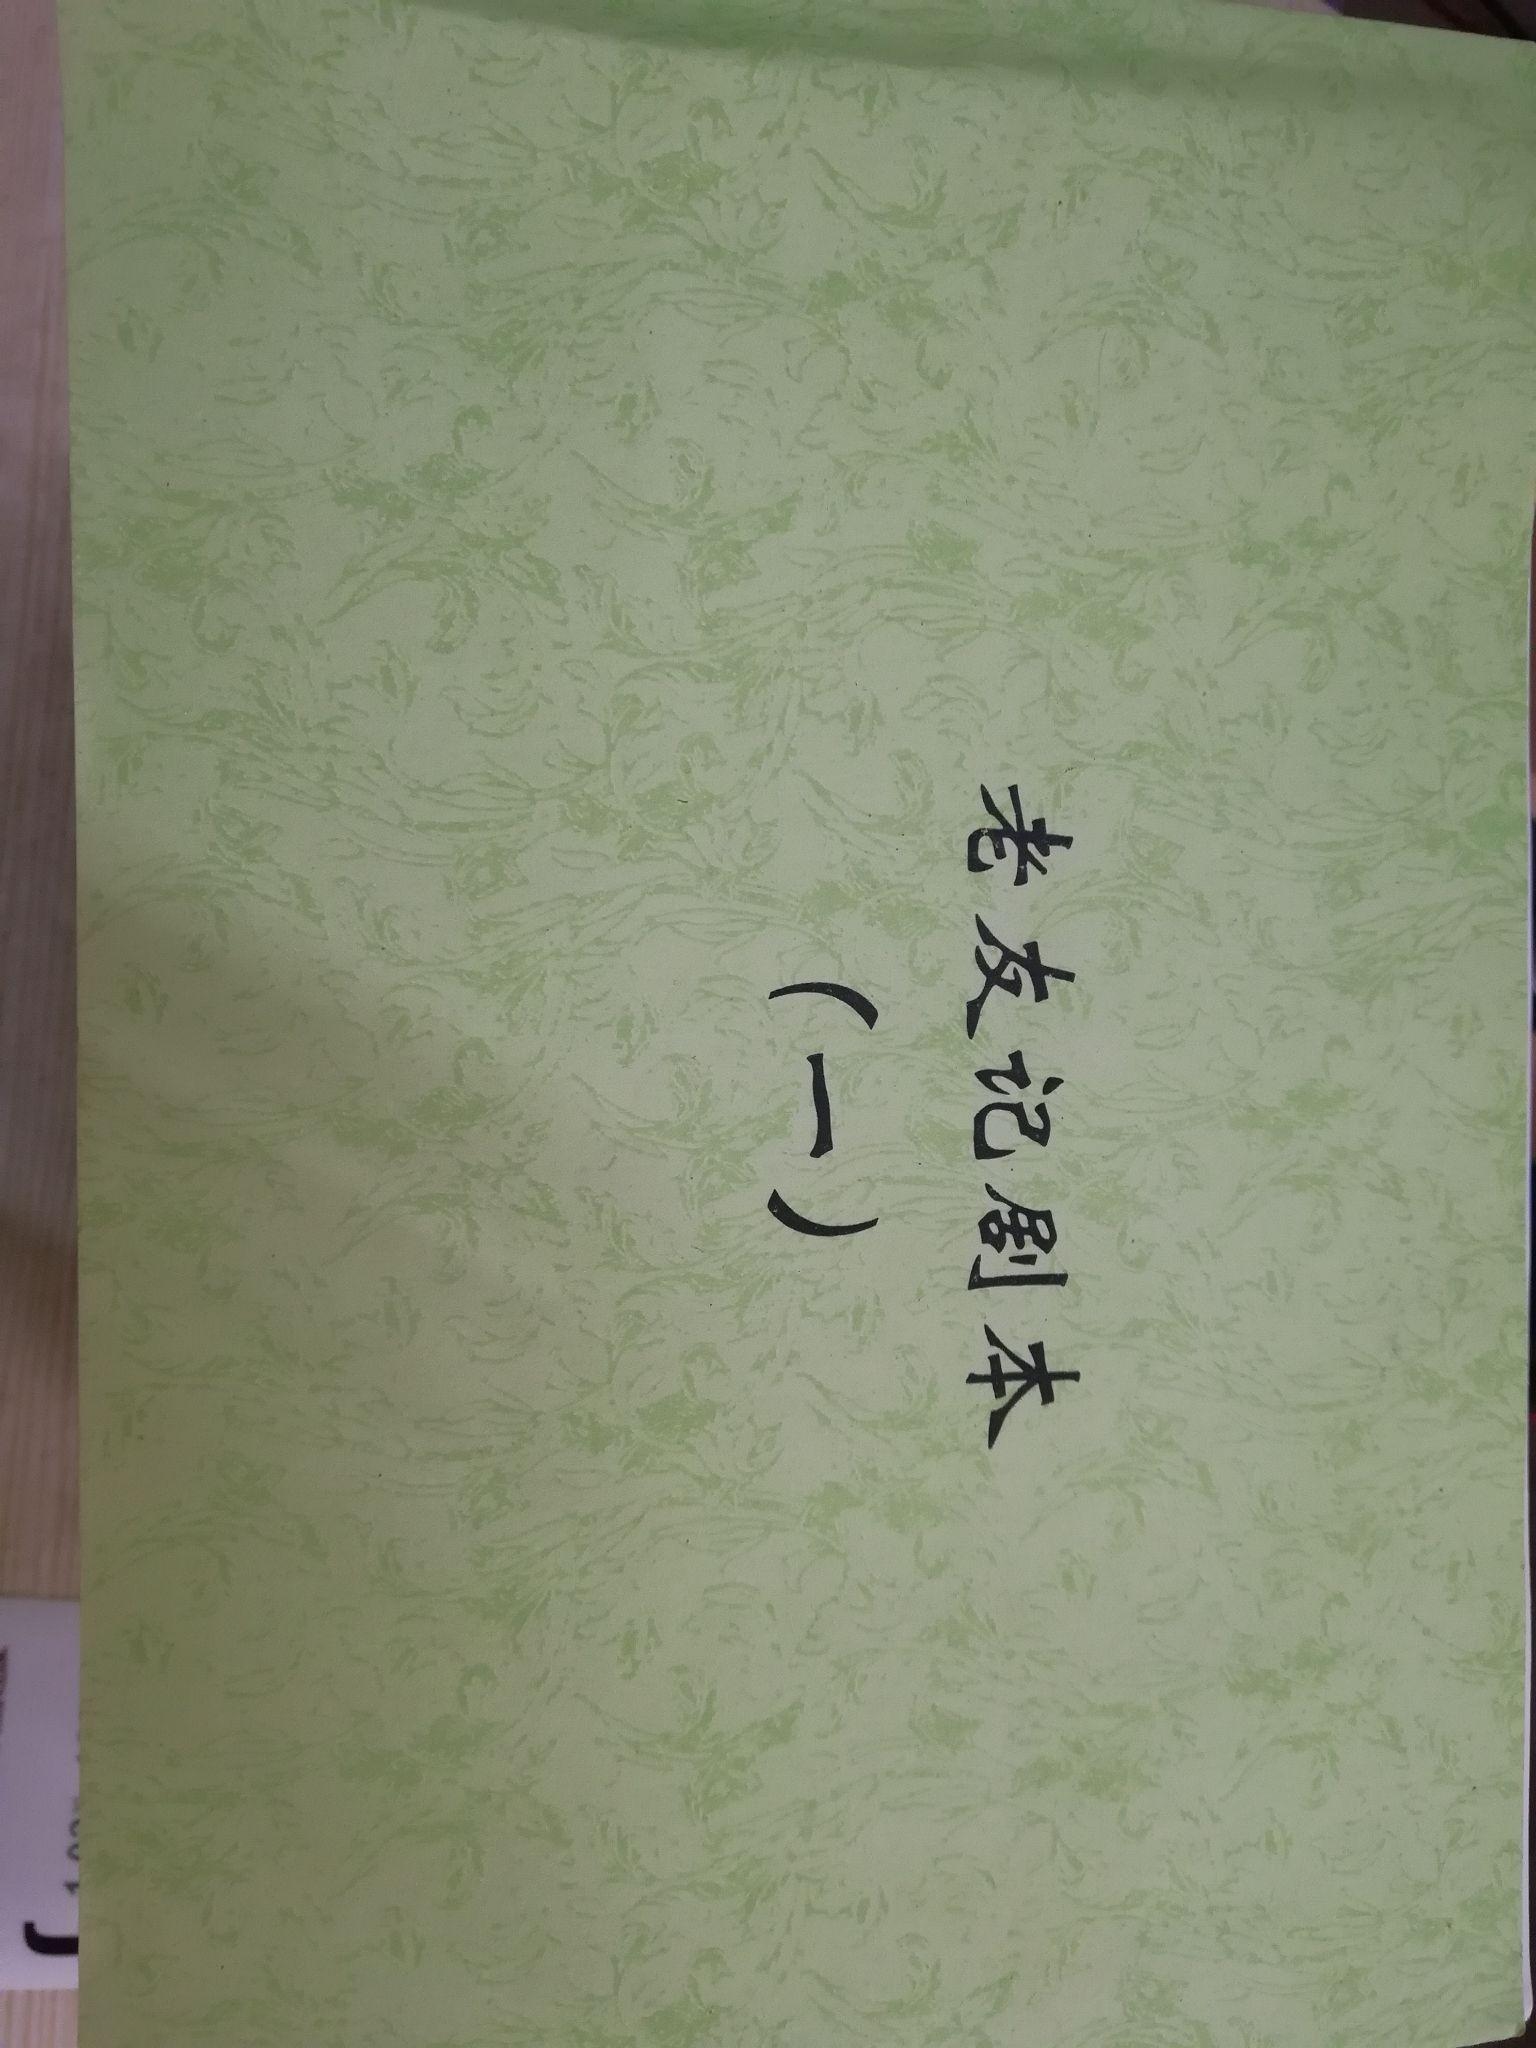 老友记剧本
（一）